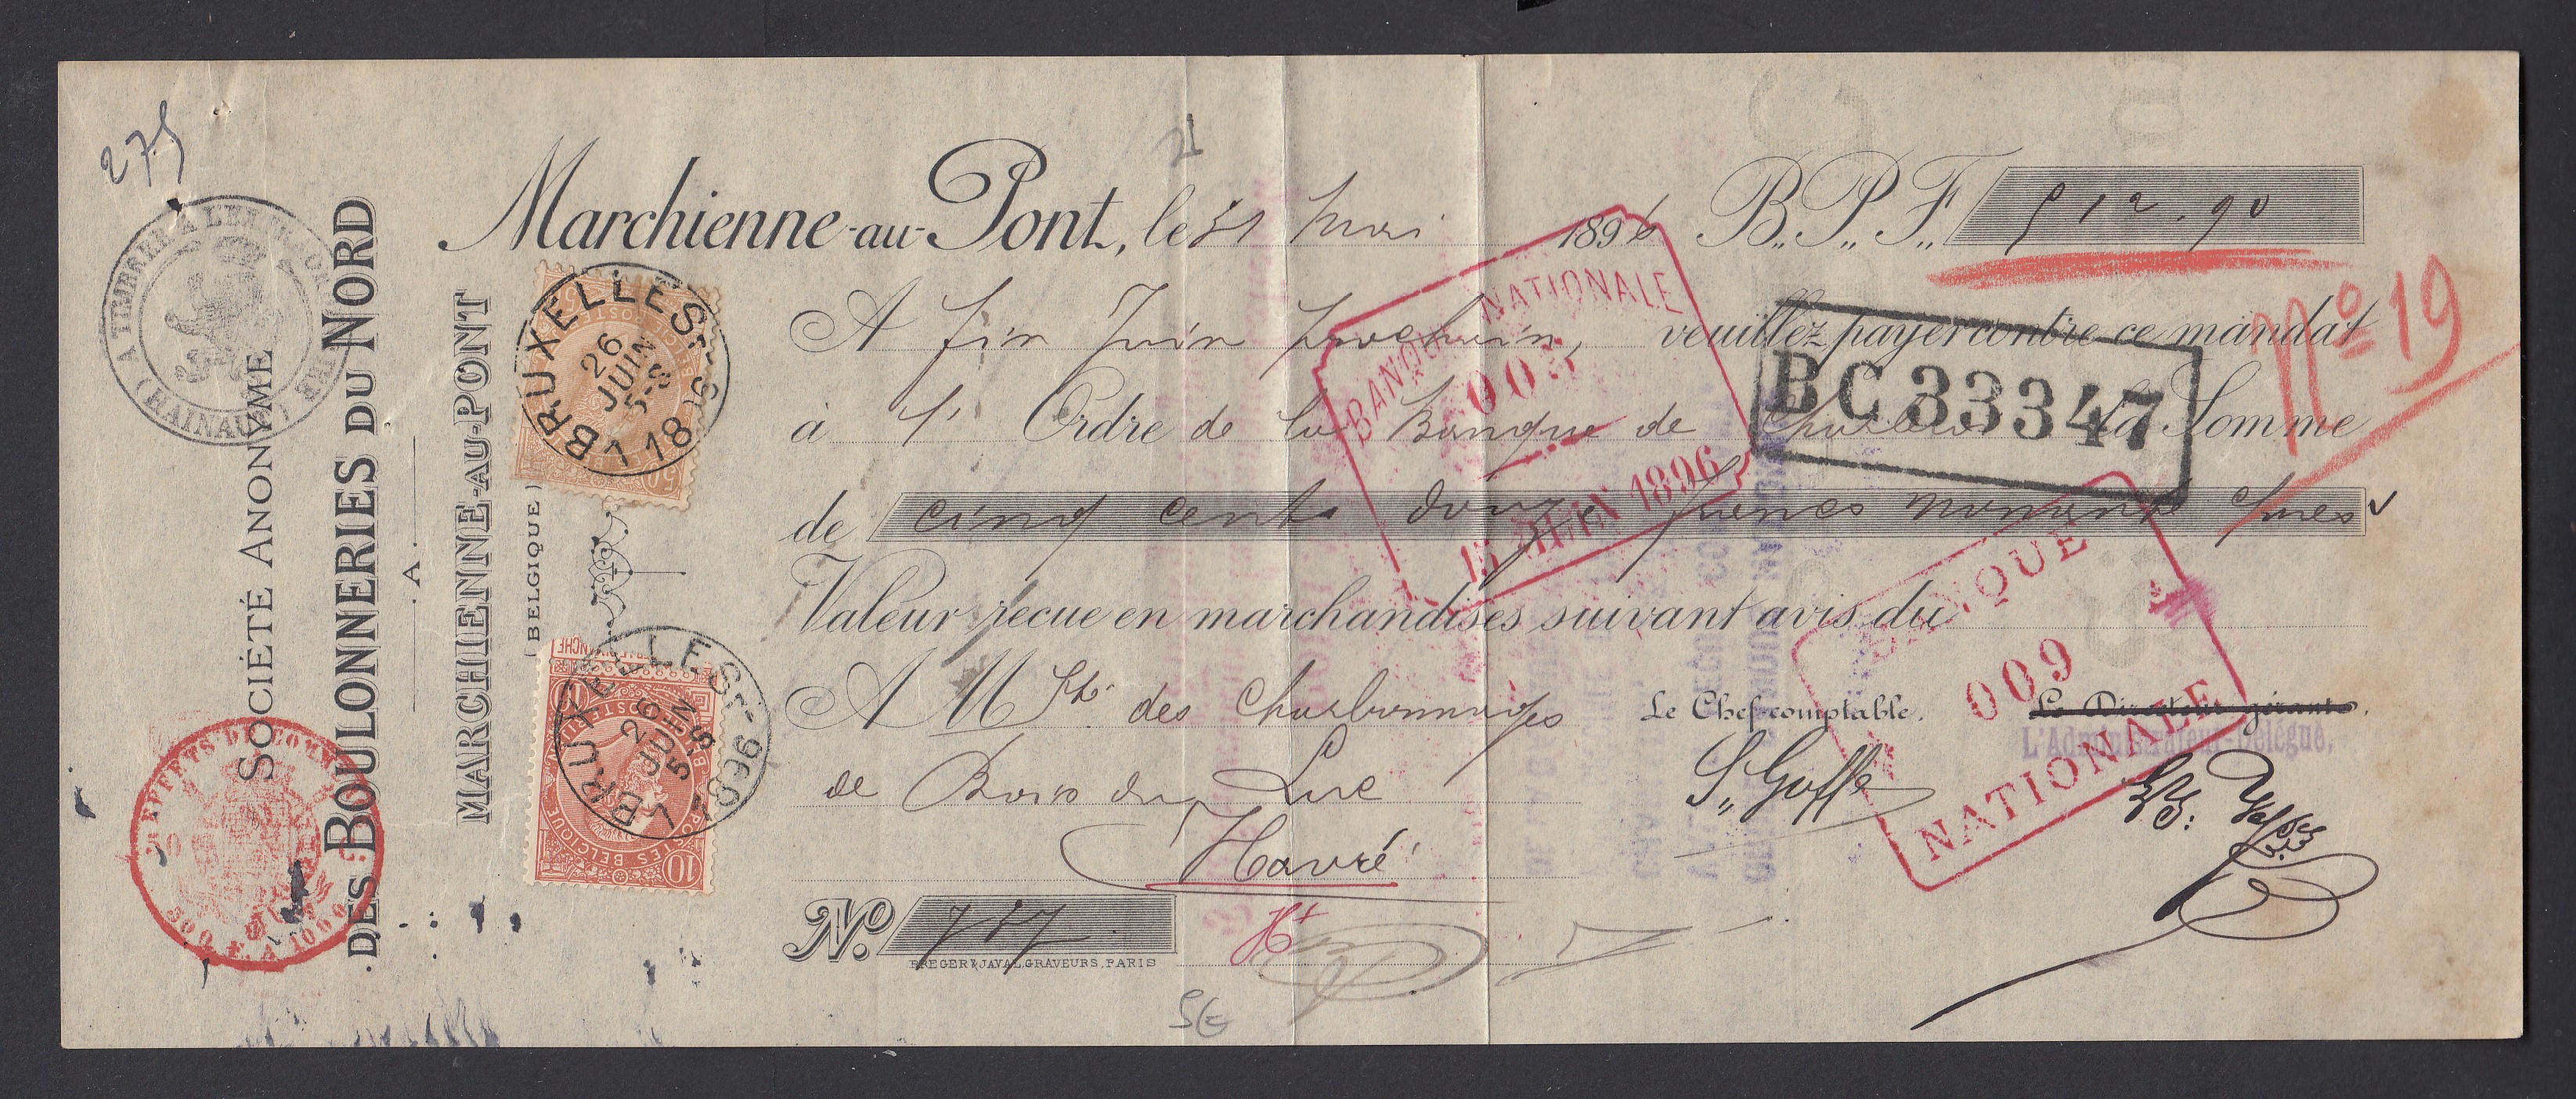 275
SOCIÉTÉ ANONYME
DES BOULONNERIES DU NORD
A
MARCHIENNE-AU-PONT
(BELGIQUE)
21
Marchienne-au-Pont, le 31 Mai 1896 B.P.F. 512.90
A fin Juin prochain, veuillez payer contre ce mandat
à l' Ordre de la Banque de la Somme
de cinq cents douze francs nonante
Valeur reçue en marchandises suivant avis du
A M Sté des Charbonnages
de Bois du Luc
Havré
Le Chef-comptable.
Le Directeur gérant.
L'Administrateur-Délégué,
S. Goffe
No. 757
BREGER & JAVAL, GRAVEURS, PARIS
Ht
BRUXELLES 1
26
JUIN
5-S
50
BRUXELLES 1
26
JUIN
5-S
1896
10
POSTES BELGIQUE
BANQUE NATIONALE
005
15 JUIN 1896
BC33347
No 19
BANQUE
009
NATIONALE
(HAINAUT)
EFFETS DE COMMERCE
500 F. A 1000